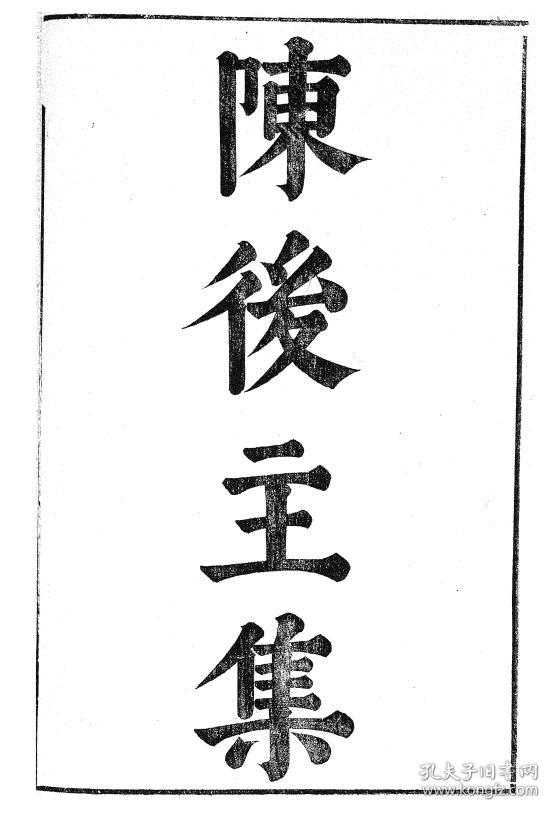 陳後主集
孔夫子旧书网
www.kongfz.com